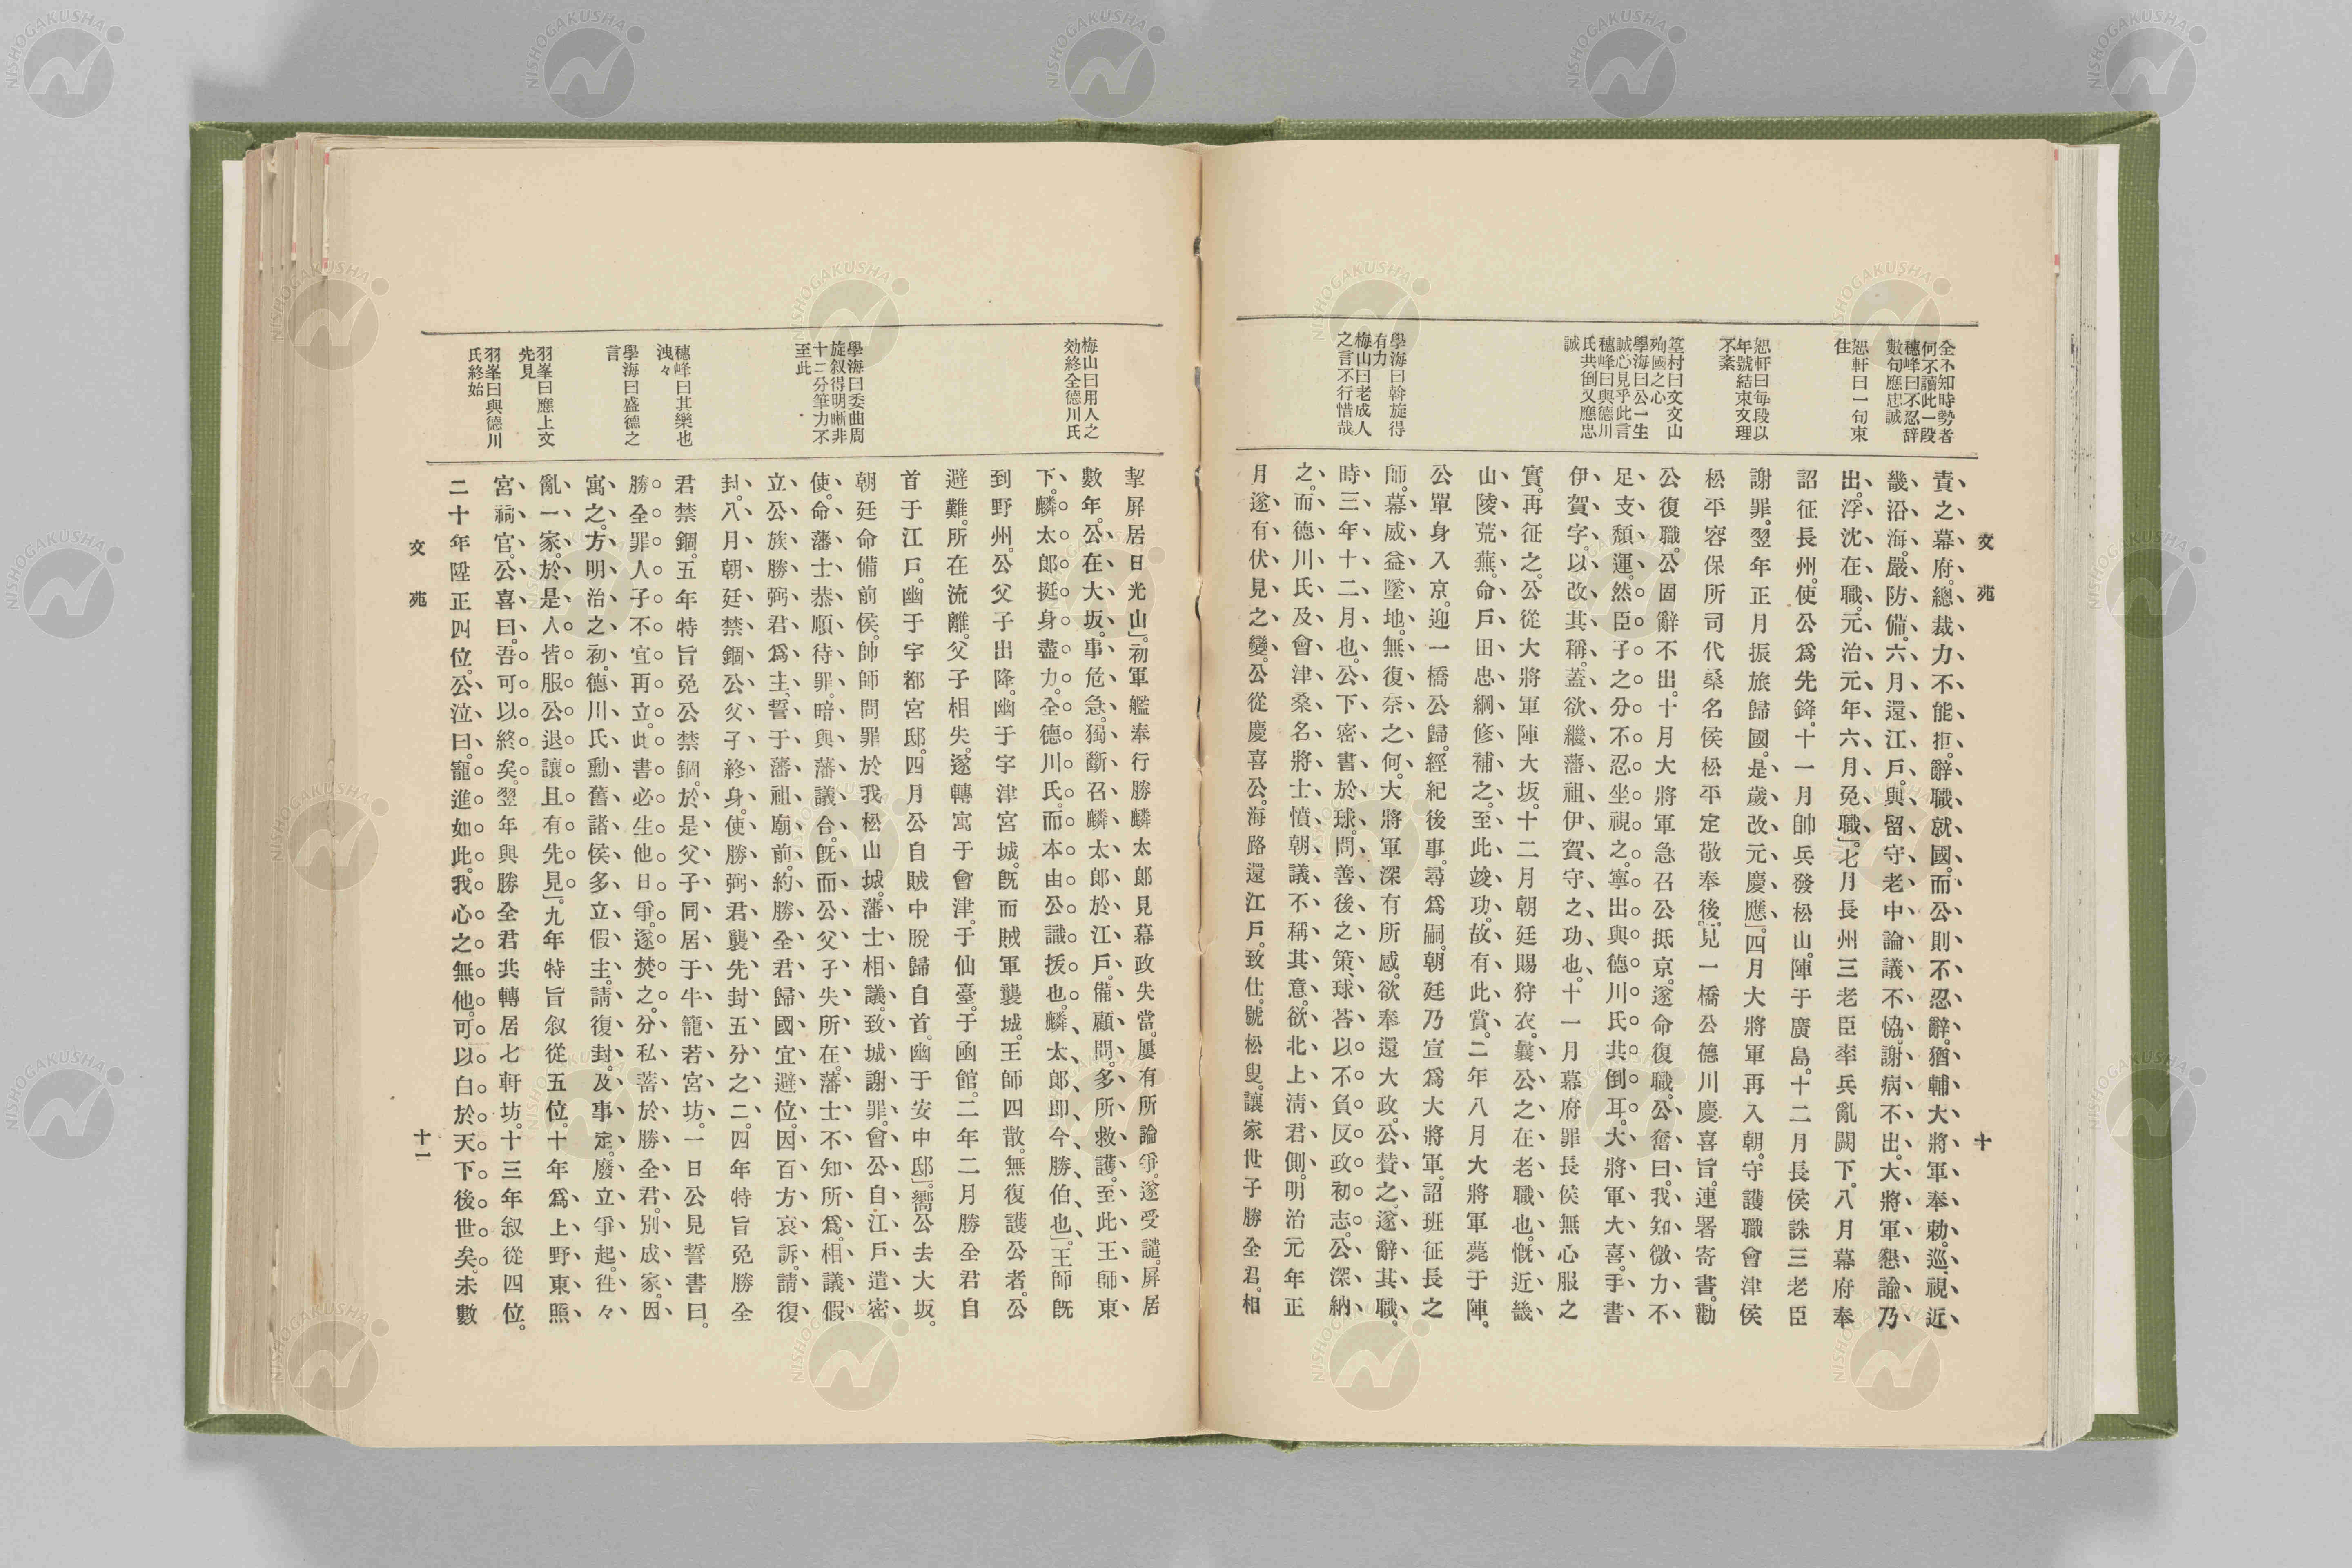 文苑
十
全不知時勢者
何不讀此一段
穗峰曰不忍辞
數句應忠誠
恕軒曰一句束
住
恕軒曰每段以
年號結束文理
不紊
篁村曰文文山
殉國之心
學海曰公一生
誠心見乎此言
穗峰曰與德川
氏共倒又應忠
誠
學海曰斡旋得
有力
梅山曰老成人
之言不行惜哉
責之幕府。總裁力不能拒。辭職就國。而公則不忍辭。猶輔大將軍奉勅。巡視近
畿沿海。嚴防備。六月還江戶。與留守老中論議不恊。謝病不出。大將軍懇諭乃
出。浮沈在職。元治元年六月免職」。七月長州三老臣率兵亂闕下。八月幕府奉
詔征長州。使公爲先鋒。十一月帥兵發松山。陣于廣島。十二月長侯誅三老臣
謝罪。翌年正月振旅歸國。是歲改元慶應」。四月大將軍再入朝。守護職會津侯
松平容保所司代桑名侯松平定敬奉後見一橋公德川慶喜旨。連署寄書。勸
公復職。公固辭不出。十月大將軍急召公抵京。遂命復職。公奮曰。我知微力不
足支頽運。然臣子之分不忍坐視之。寧出與德川氏共倒耳。大將軍大喜。手書
伊賀字。以改其稱。蓋欲繼藩祖伊賀守之功也。十一月幕府罪長侯無心服之
實。再征之。公從大將軍陣大坂。十二月朝廷賜狩衣。曩公之在老職也。慨近畿
山陵荒蕪。命戶田忠綱修補之。至此竣功。故有此賞。二年八月大將軍薨于陣。
公單身入京。迎一橋公歸。經紀後事。尋爲嗣。朝廷乃宣爲大將軍。詔班征長之
師。幕威益墜地。無復奈之何。大將軍深有所感。欲奉還大政。公贊之。遂辭其職。
時三年十二月也。公下密書於球。問善後之策。球荅以不負反政初志。公深納
之。而德川氏及會津桑名將士憤朝議不稱其意。欲北上淸君側。明治元年正
月遂有伏見之變。公從慶喜公。海路還江戶。致仕。號松叟。讓家世子勝全君。相
梅山曰用人之
効終全德川氏
學海曰委曲周
旋叙得明晰非
十二分筆力不
至此
穗峰曰其樂也
洩々
學海曰盛德之
言
羽峯曰應上文
先見
羽峯曰與德川
氏終始
挈屏居日光山」。初軍艦奉行勝麟太郎見幕政失當。屢有所論爭。遂受譴。屏居
數年。公在大坂。事危急。獨斷召麟太郎於江戶。備顧問。多所救護。至此王師東
下。麟太郎挺身盡力。全德川氏。而本由公識拔也。麟太郎即今勝伯也」。王師旣
到野州。公父子出降。幽于宇津宮城。旣而賊軍襲城。王師四散。無復護公者。公
避難。所在流離。父子相失。遂轉寓于會津。于仙臺。于函館。二年二月勝全君自
首于江戶。幽于宇都宮邸。四月公自賊中脫歸自首。幽于安中邸」。嚮公去大坂。
朝廷命備前侯。帥師問罪於我松山城。藩士相議。致城謝罪。會公自江戶遣密
使。命藩士恭順待罪。暗與藩議合。旣而公父子失所在。藩士不知所爲。相議假
立公族勝弼君爲主。誓于藩祖廟前。約勝全君歸國宜避位。因百方哀訴。請復
封。八月朝廷禁錮公父子終身。使勝弼君襲先封五分之二。四年特旨免勝全
君禁錮。五年特旨免公禁錮。於是父子同居于牛籠若宮坊。一日公見誓書曰。
勝全罪人子不宜再立。此書必生他日爭。遂焚之。分私蓄於勝全君。別成家。因
寓之。方明治之初。德川氏勳舊諸侯多立假主。請復封。及事定。廢立爭起。徃々
亂一家。於是人皆服公退讓且有先見」。九年特旨叙從五位。十年爲上野東照
宮祠官。公喜曰。吾可以終矣。翌年與勝全君共轉居七軒坊。十三年叙從四位。
二十年陞正四位。公泣曰。寵進如此。我心之無他。可以白於天下後世矣。未數
文苑
十一